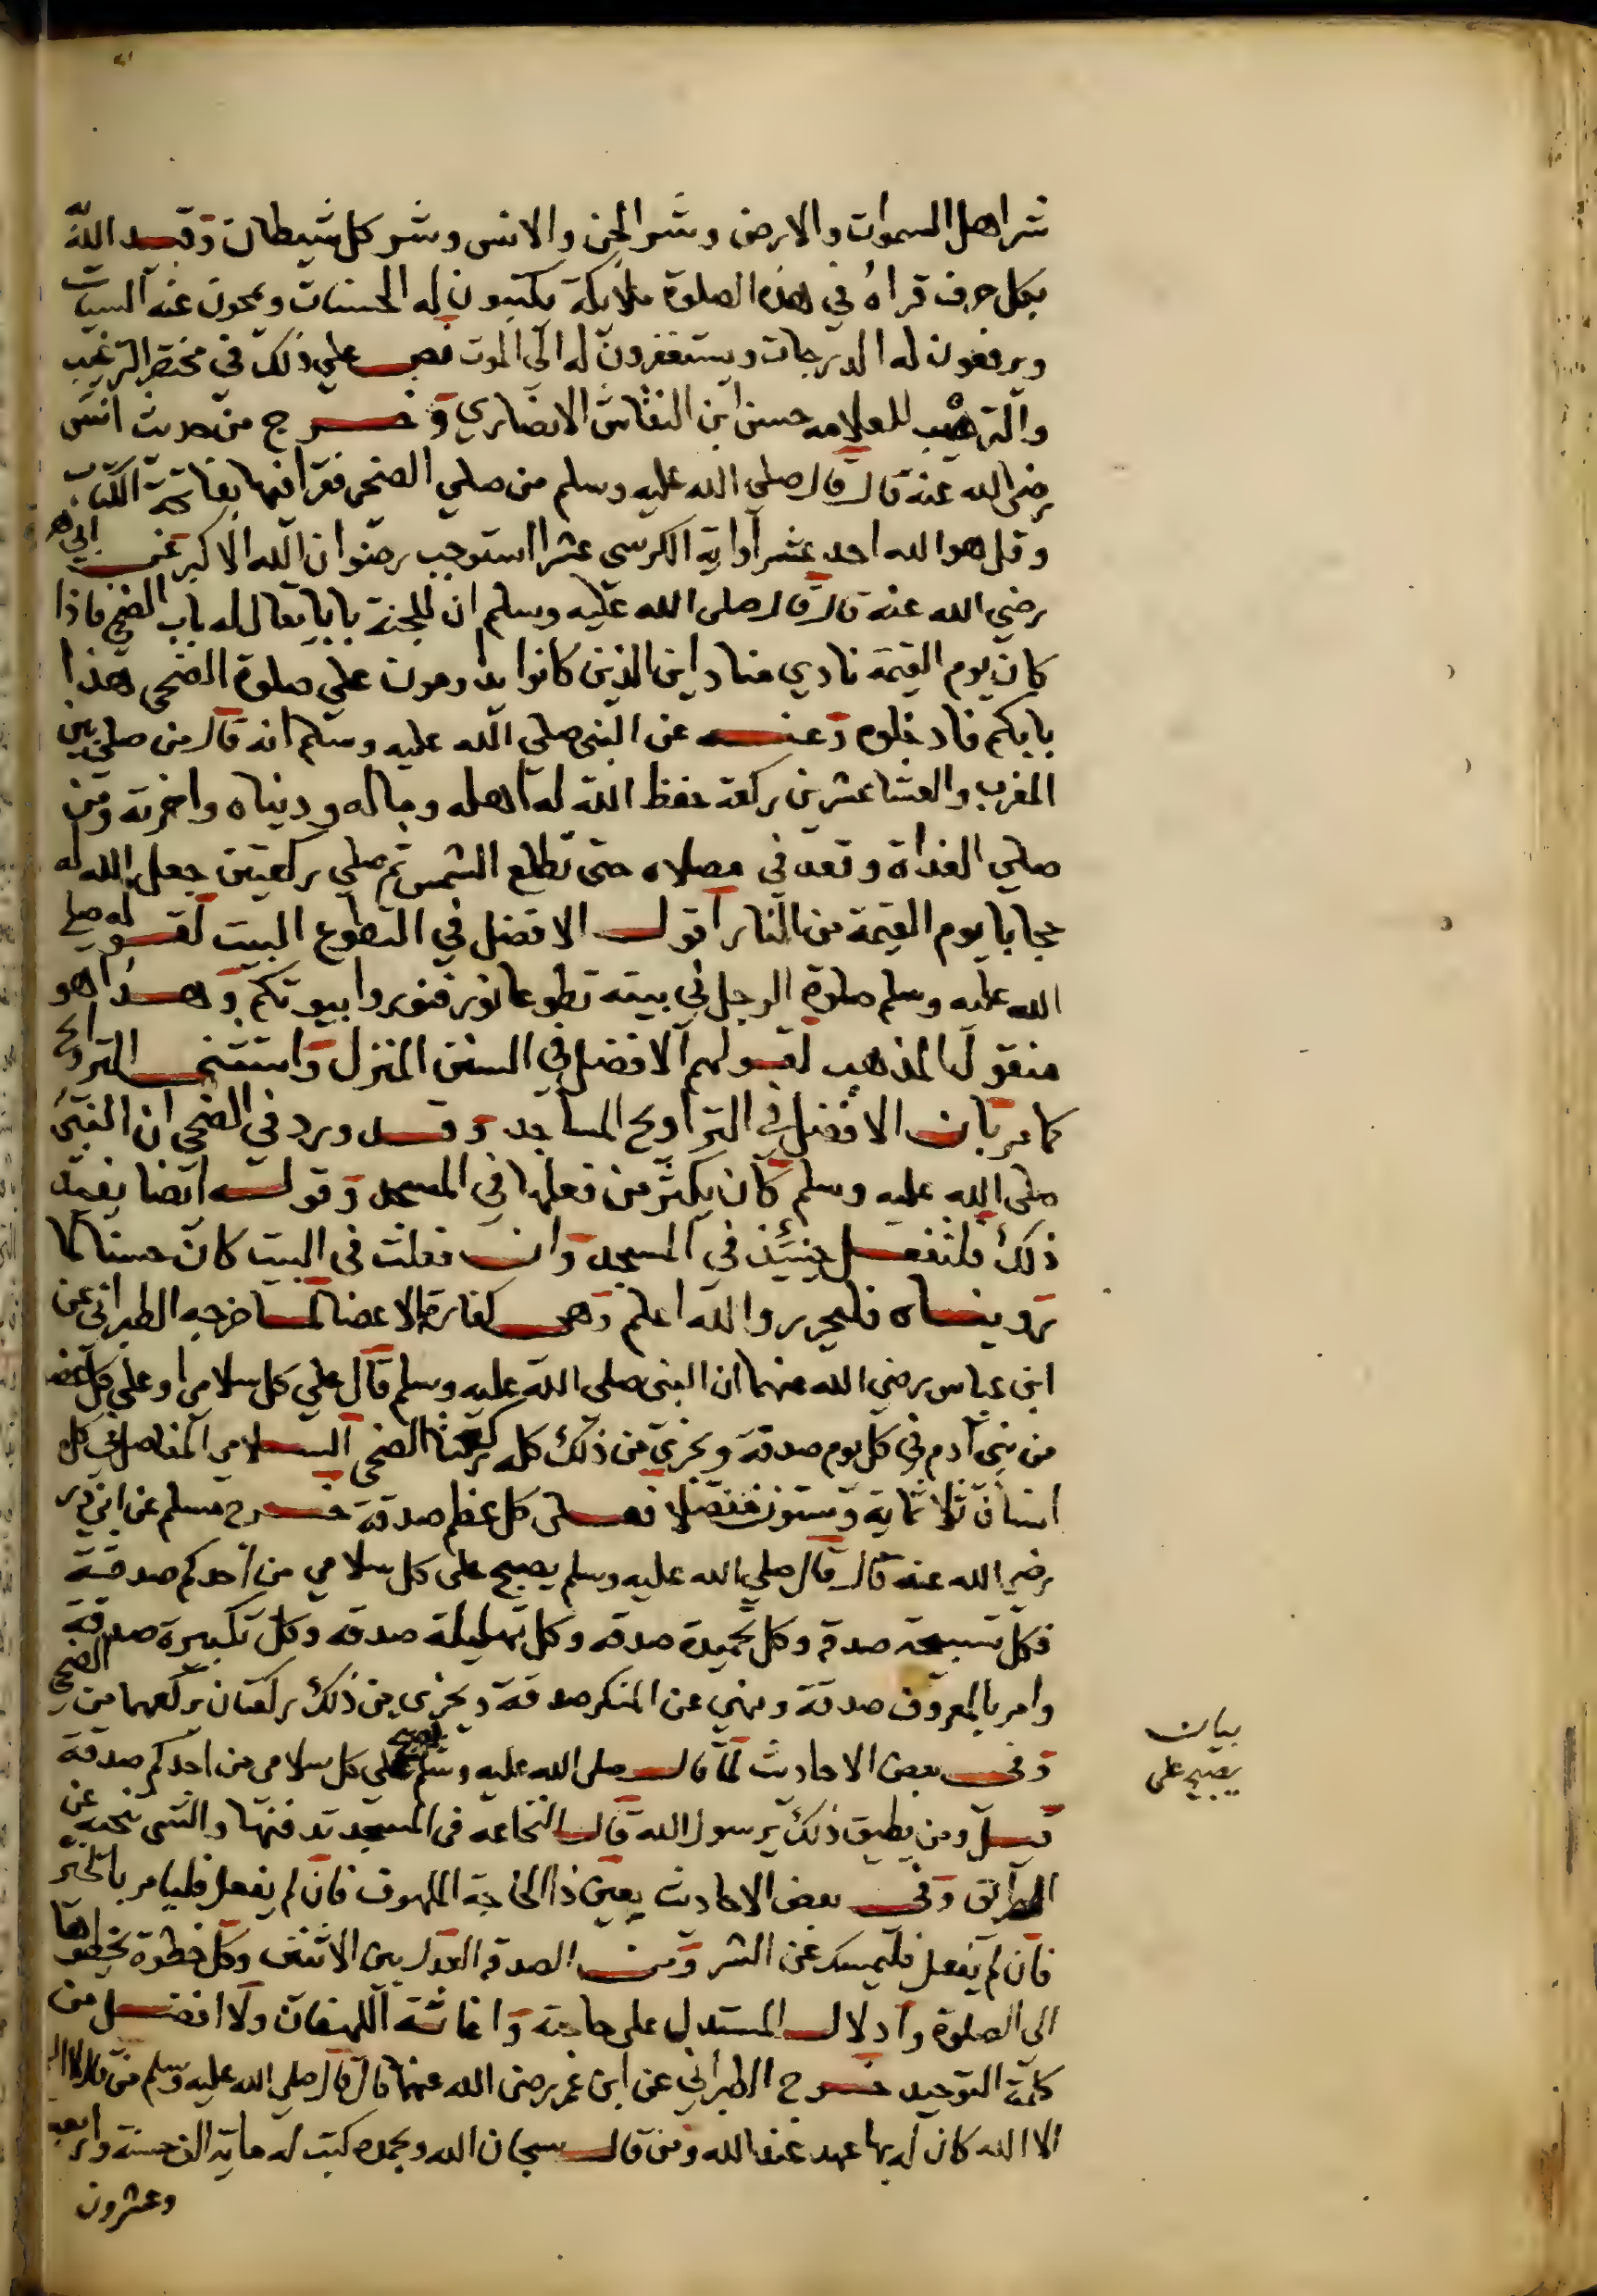 شر اهل السموات والارض وشر الجن والانس وشر كل شيطان وقيد الله
بكل حرف قراه في هذه الصلوة ملايكة يكتبون له الحسنات ويمحون عنه السيات
ويرفعون له الدرجات ويستغفرون له الى الموت نص علي ذلك في مختصر الترغيب
والترهيب للعلامه حسن ابن النقاش الانصاري وخرج من حديث انس
رضى الله عنه قال قال صلي الله عليه وسلم من صلي الضحى فقرا فيها بفاتحة الكتاب
وقل هو الله احد عشرا واية الكرسى عشرا استوجب رضوان الله الاكبر عن ابي هر
رضي الله عنه قال قال صلى الله عليه وسلم ان للجنة بابا يقال له باب الضحى فاذا
كان يوم القيمة نادي مناد اين الذين كانوا يداومون علي صلوة الضحى هذا
بابكم فادخلوه وعنه عن النبى صلي الله عليه وسلم انه قال من صلي بين
المغرب والعشا عشرين ركعة حفظ الله له اهله وماله ودنياه واخرته ومن
صلي الغداة وقعد في مصلاه حتى تطلع الشمس ثم صلي ركعتين جعل الله له
حجابا يوم القيمة من النار اقول الافضل في التطوع البيت لقوله صلي
الله عليه وسلم صلوة الرجل في بيته تطوعا نور فنوروا بيوتكم وهذا هو
منقول المذهب لقولهم الافضل في السنن المنزل واستثنى التراويح
كما مر بان الافضل في التراويح المساجد وقد ورد في الضحى ان النبى
صلى الله عليه وسلم كان يكثر من فعلها في المسجد وقوله ايضا يفيد
ذلك فلتفعل حينئذ في المسجد وان فعلت في البيت كان حسنا لما
رويناه فليحرر والله اعلم وهى كفارة الاعضا لما خرجه الطبرانى عن
ابن عباس رضي الله عنهما ان النبى صلى الله عليه وسلم قال علي كل سلامى او علي كل عضو
من بنى ادم في كل يوم صدقة ويجزي من ذلك كله ركعتا الضحى السلامى المفاصل في كل
انسان ثلاثماية وستون مفصلا فعلى كل عظم صدقة خرج مسلم عن ابى ذر
رضي الله عنه قال قال صلي الله عليه وسلم يصبح على كل سلامي من احدكم صدقة
فكل تسبيحة صدقه وكل تحميدة صدقه وكل تهليلة صدقه وكل تكبيرة صدقة
وامر بالمعروف صدقة ونهي عن المنكر صدقة ويجزى من ذلك ركعتان يركعهما من الضحى
وفى بعض الاحاديث لما قال صلى الله عليه وسلم يصبح علي كل سلامى من احدكم صدقة
قيل ومن يطيق ذلك يرسول الله قال النخاعه فى المسجد تدفنها والشى تنحيه عن
الطريق وفى بعض الاحاديث يعين ذا الحاجة الملهوف فان لم يفعل فليامر بالخير
فان لم يفعل فليمسك عن الشر ومن الصدقه العدل بين الاثنين وكل خطوة تخطوها
الى الصلوة وادلال المستدل على حاجته واغاثة اللهفان ولا افضل من
كلمة التوحيد خرج الطبراني عن ابن عمر رضى الله عنهما قال قال صلي الله عليه وسلم من قال لا اله
الا الله كان له بها عهد عند الله ومن قال سبحان الله وبحمده كتبت له ماية الف حسنة واربعه
وعشرون
بيان
يصبح على